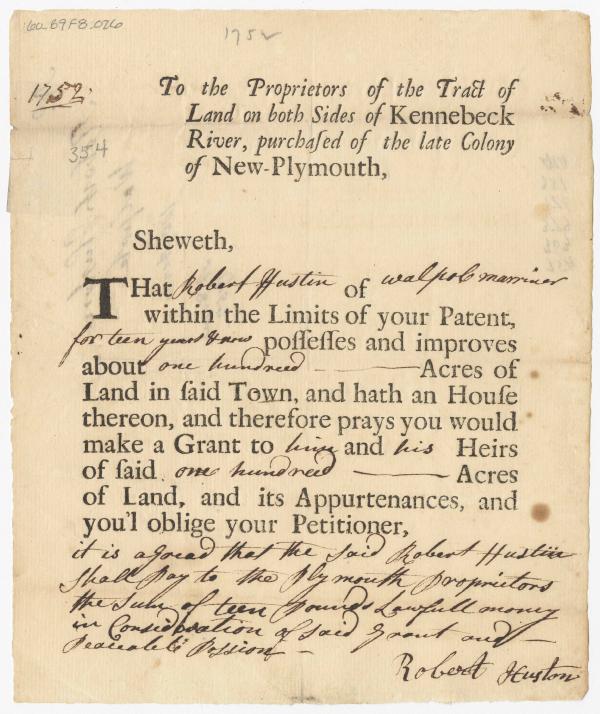 60_B9F8_026
1752
1752
354
To the Proprietors of the Tract of
Land on both Sides of Kennebeck
River, purchaſed of the late Colony
of New-Plymouth,
Sheweth,
THat Robert Hustin of walpol marriner
within the Limits of your Patent,
for teen years & now poſſeſſes and improves
about one hundreed Acres of
Land in ſaid Town, and hath an Houſe
thereon, and therefore prays you would
make a Grant to him and his Heirs
of ſaid one hundreed Acres
of Land, and its Appurtenances, and
you'l oblige your Petitioner,
it is agread that the said Robert Hustin
shall Pay to the Plymouth Proprietors
the Sum of teen Pounds Lawfull money
in Considration of said Grant and
Peacable Possion
Robert Huston